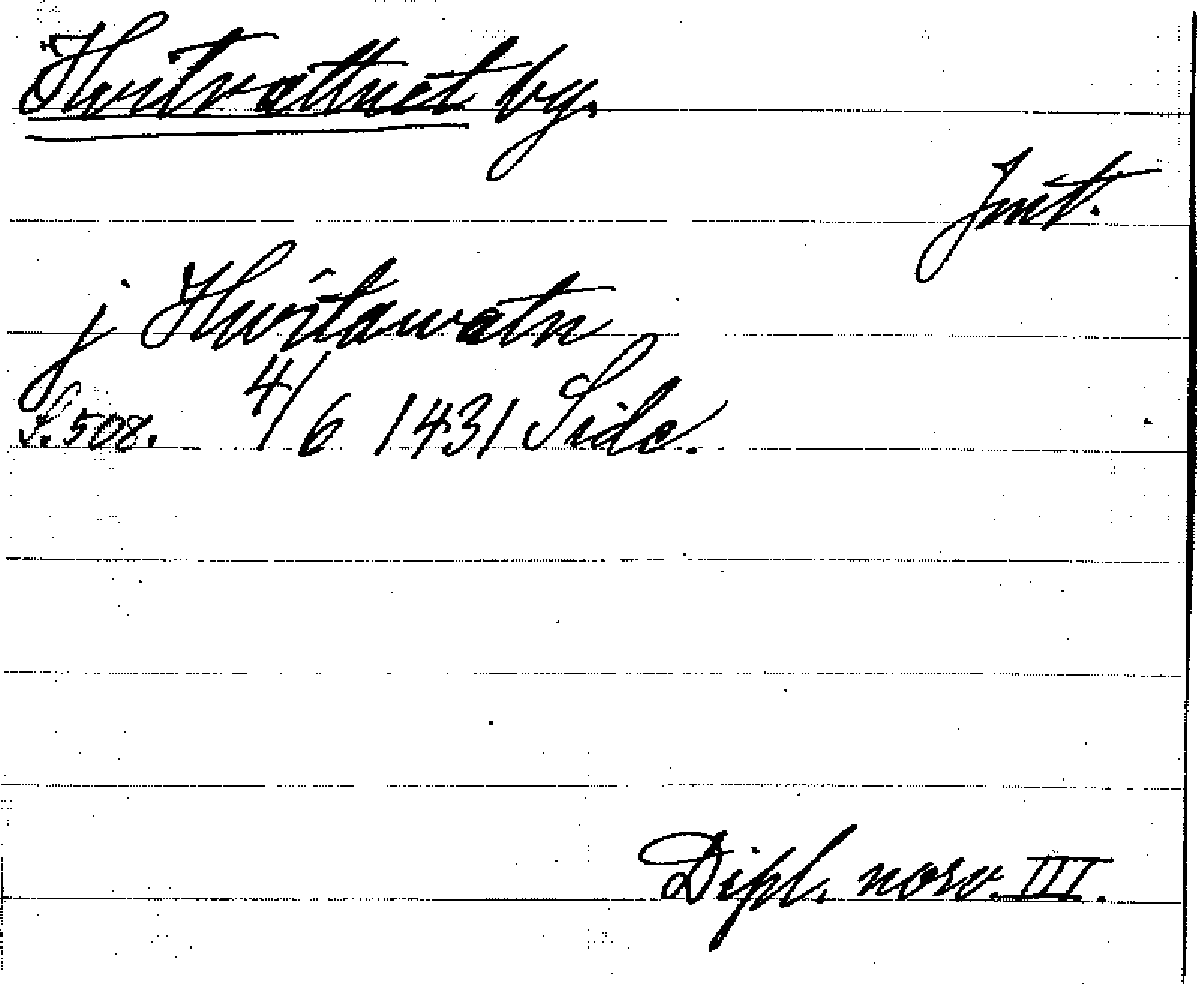 Hvitvattnet by.
Jmt.
j Hwitawatn
S. 508. 4/6 1431 Side.
Dipl. norv. III.